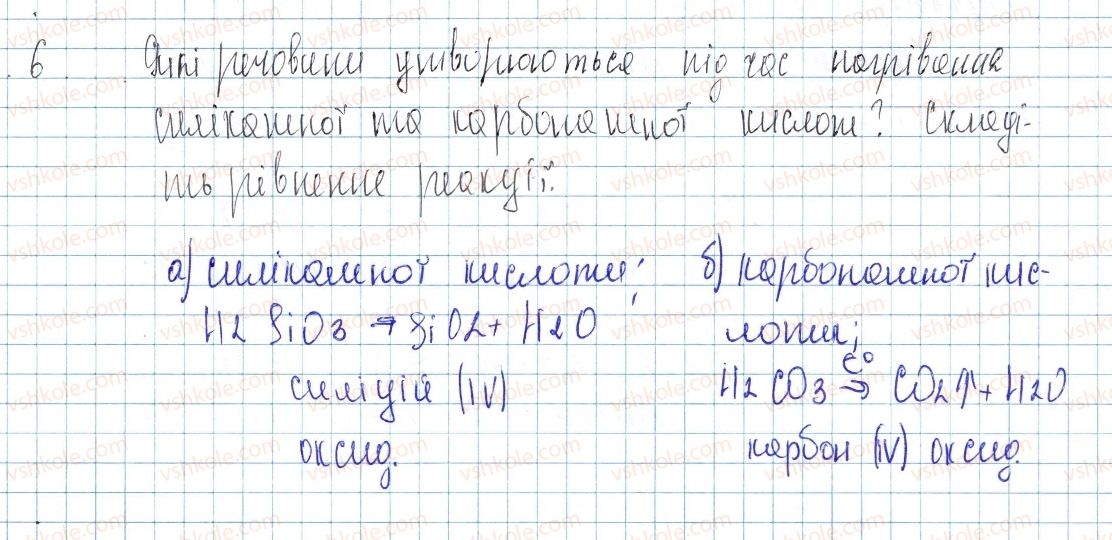 6 Які речовини утворюються під час нагрівання
силікатної та карбонатної кислот? Складі-
ть рівнення реакції.
а) силікатної кислоти;
H2SiO3 → SiO2 + H2O
силіцій (IV)
оксид.
б) карбонатної кис-
лоти;
H2CO3 t° → CO2↑ + H2O
карбон (IV) оксид.